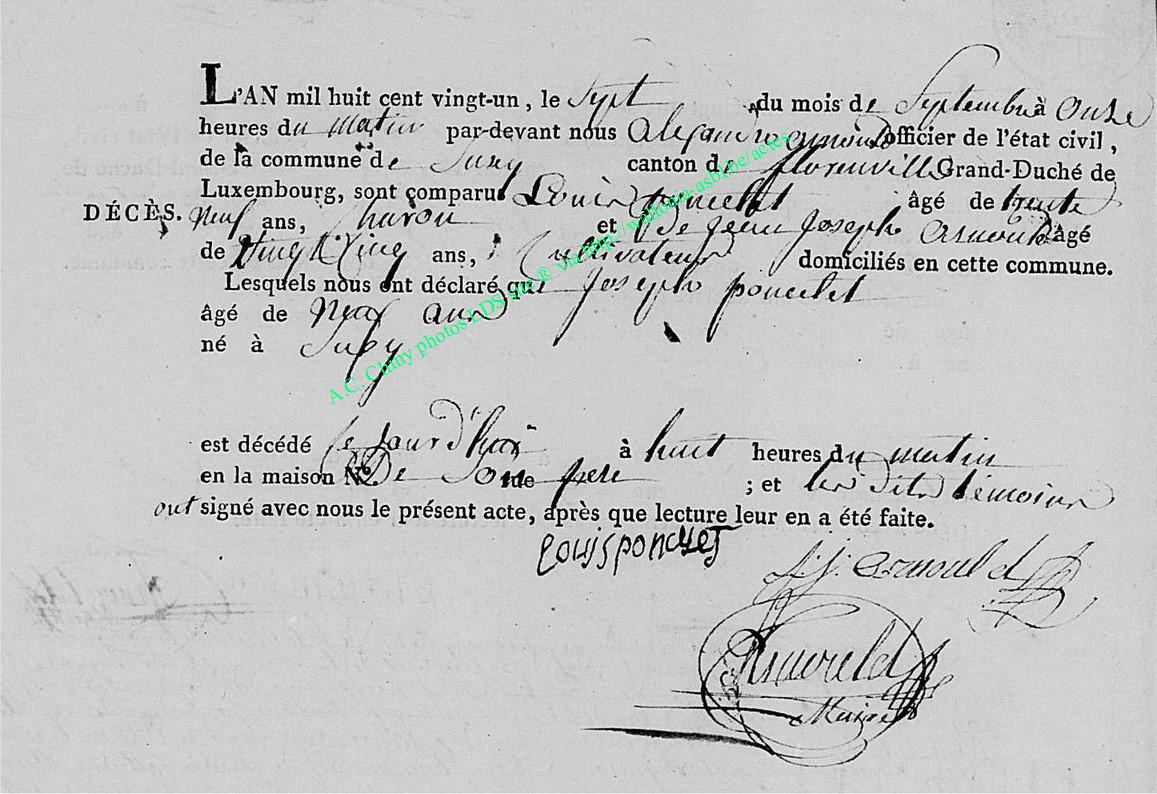 L'AN mil huit cent vingt-un, le Sept du mois de Septembre à onze
heures du matin par-devant nous Alexandre Arnould officier de l'état civil,
de la commune de Suxy canton de florenville Grand-Duché de
Luxembourg, sont comparus Louis poncelet âgé de trente
DÉCÈS. Neuf ans, Charon et De jean joseph Arnould âgé
de Vingt Cinq ans, Cultivateur domiciliés en cette commune.
Lesquels nous ont déclaré que joseph poncelet
âgé de Neuf ans
né à Suxy
est décédé ce jourd'hui à huit heures du matin
en la maison No. De Son frere ; et les dits témoins
ont signé avec nous le présent acte, après que lecture leur en a été faite.
Louis poncelet
J. j. Arnould
Arnould
Maire
A.C. Chiny photos LDS site ® via http://wallonia-asbl.be/actes